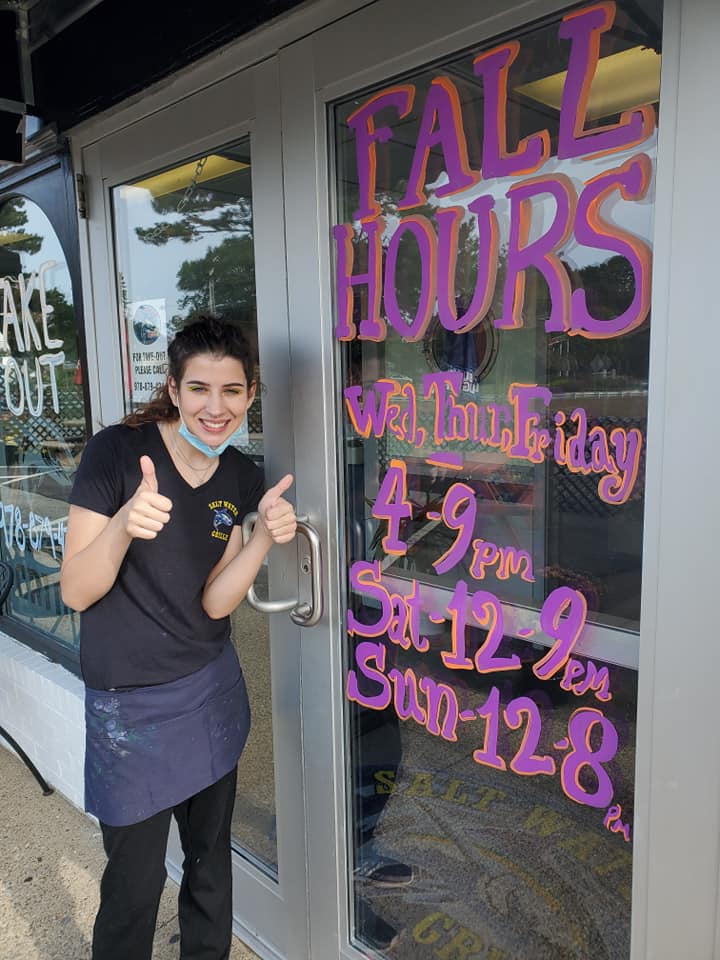 FALL
HOURS
Wed, Thur, Friday
4-9pm
Sat-12-9pm
Sun-12-8pm
AKE
OUT
FOR TAKE-OUT
PLEASE CALL
SALT WATER
GRILLE
SALT WAT
GR